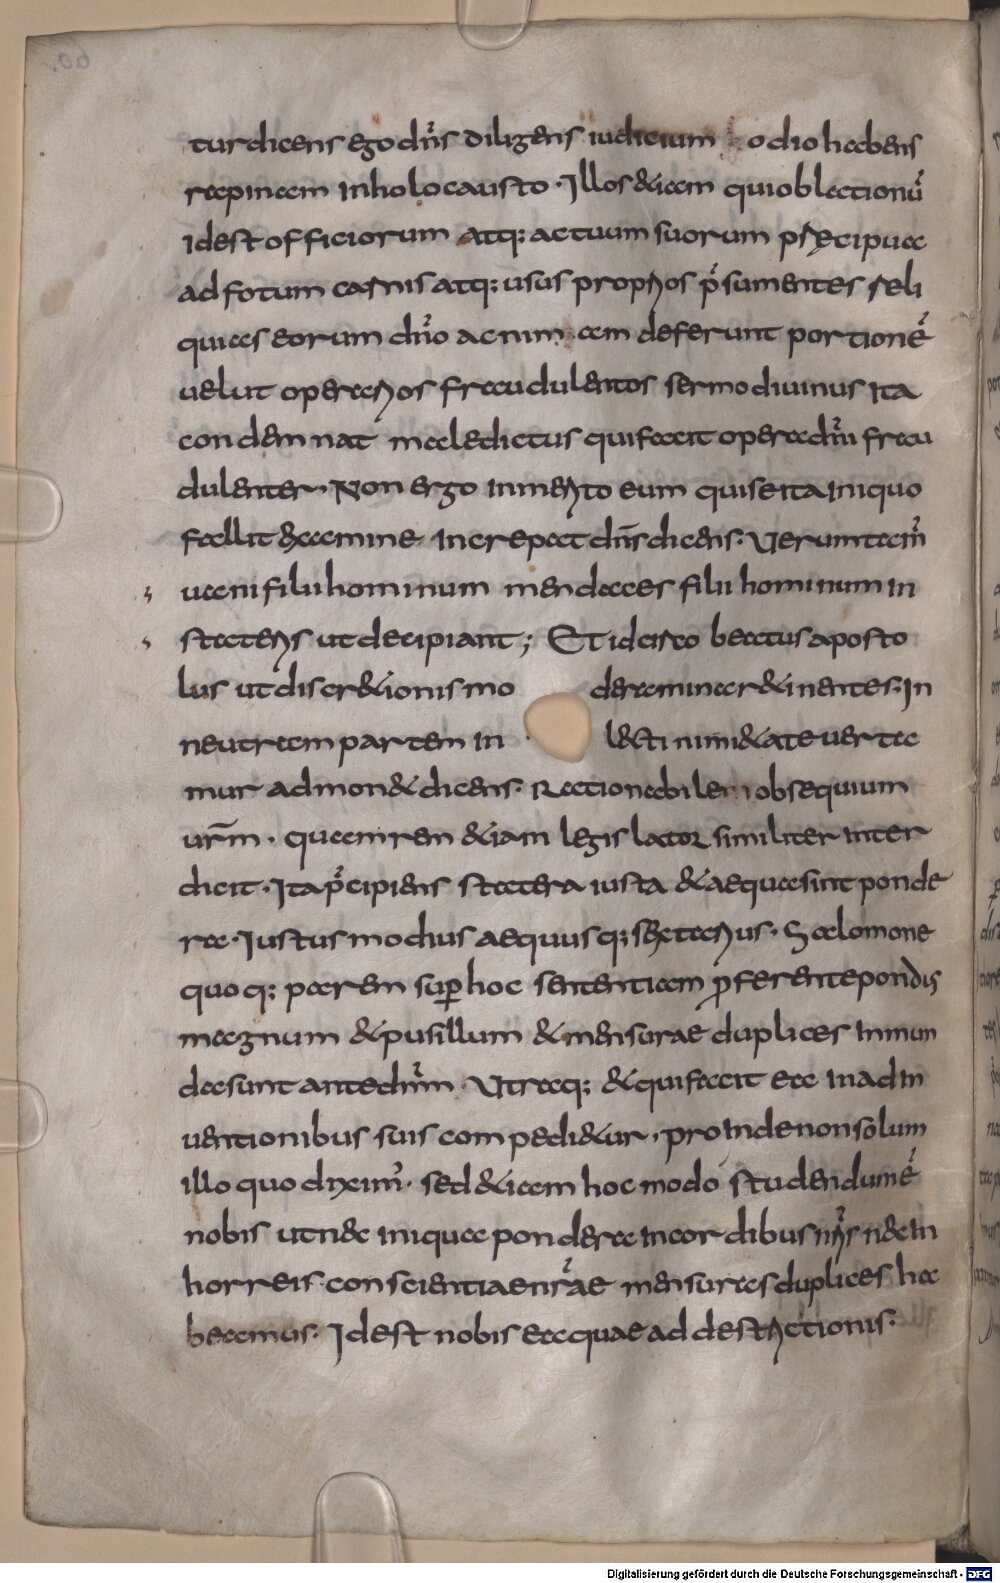 tur dicens ego dn̄s diligens iudicium odio habens
rapinam in holocausto · Illos &iam qui oblationū
id est officiorum atq; actuum suorum praecipue
ad fotum carnis atq; usus proprios p̄sumentes reli
quias eorum dn̄o ac nimiam deferunt portionē
uelut operarios fraudulentos sermo diuinus ita
condemnat maledictus qui facit opera dn̄i frau
dulenter · Non ergo inmerito eum qui se ita iniquo
fallit examine increpat dn̄s dicens · Uerumtam̄
uani filii hominum mendaces filii hominum in
stateris ut decipiant ; Et idcirco beatus aposto
lus ut discr&ionis moderamina r&inentes · In
neutram partem inlecti nimi&ate uerta
mur admon& dicens · Rationabilem obsequium
urm̄ · quam rem &iam legis lator similiter inter
dicit · Ita p̄cipiens statera iusta & aequa sint ponde
ra · Iustus modius aequusq; sextarius · Salomone
quoq; parem sup̱ hoc sententiam ꝓferente pondus
magnum & pusillum & mensurae duplices inmun
da sunt ante dn̄m · Utraq; & qui facit ea in adin
uentionibus suis compedi&ur · proinde non solum
illo quo dixim̄ · sed &iam hoc modo studendum ē
nobis ut nec iniqua pondera in cordibus nr̄is nec in
horreis conscientiae nr̄ae mensuras duplices ha
beamus · Id est nobis ea quae ad destrictionis ·
Digitalisierung gefördert durch die Deutsche Forschungsgemeinschaft - DFG